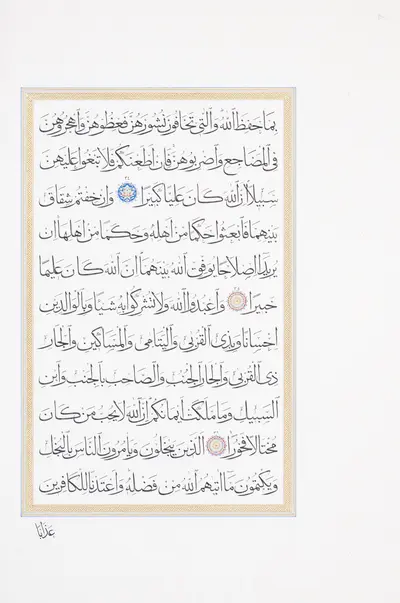 بِمَا حَفِظَ ٱللَّهُ وَٱلَّٰتِى تَخَافُونَ نُشُوزَهُنَّ فَعِظُوهُنَّ وَٱهْجُرُوهُنَّ
فِى ٱلْمَضَاجِعِ وَٱضْرِبُوهُنَّ فَإِنْ أَطَعْنَكُمْ فَلَا تَبْغُوا عَلَيْهِنَّ
سَبِيلًا إِنَّ ٱللَّهَ كَانَ عَلِيًّا كَبِيرًا وَإِنْ خِفْتُمْ شِقَاقَ
بَيْنِهِمَا فَٱبْعَثُوا حَكَمًا مِنْ أَهْلِهِ وَحَكَمًا مِنْ أَهْلِهَا إِنْ
يُرِيدَا إِصْلَاحًا يُوَفِّقِ ٱللَّهُ بَيْنَهُمَا إِنَّ ٱللَّهَ كَانَ عَلِيمًا
خَبِيرًا وَٱعْبُدُوا ٱللَّهَ وَلَا تُشْرِكُوا بِهِ شَيْئًا وَبِٱلْوَالِدَيْنِ
إِحْسَانًا وَبِذِى ٱلْقُرْبَى وَٱلْيَتَامَى وَٱلْمَسَاكِينِ وَٱلْجَارِ
ذِى ٱلْقُرْبَى وَٱلْجَارِ ٱلْجُنُبِ وَٱلصَّاحِبِ بِٱلْجَنْبِ وَٱبْنِ
ٱلسَّبِيلِ وَمَا مَلَكَتْ أَيْمَانُكُمْ إِنَّ ٱللَّهَ لَا يُحِبُّ مَنْ كَانَ
مُخْتَالًا فَخُورًا ٱلَّذِينَ يَبْخَلُونَ وَيَأْمُرُونَ ٱلنَّاسَ بِٱلْبُخْلِ
وَيَكْتُمُونَ مَا آتَيهُمُ ٱللَّهُ مِنْ فَضْلِهِ وَأَعْتَدْنَا لِلْكَافِرِينَ
عَذَابًا